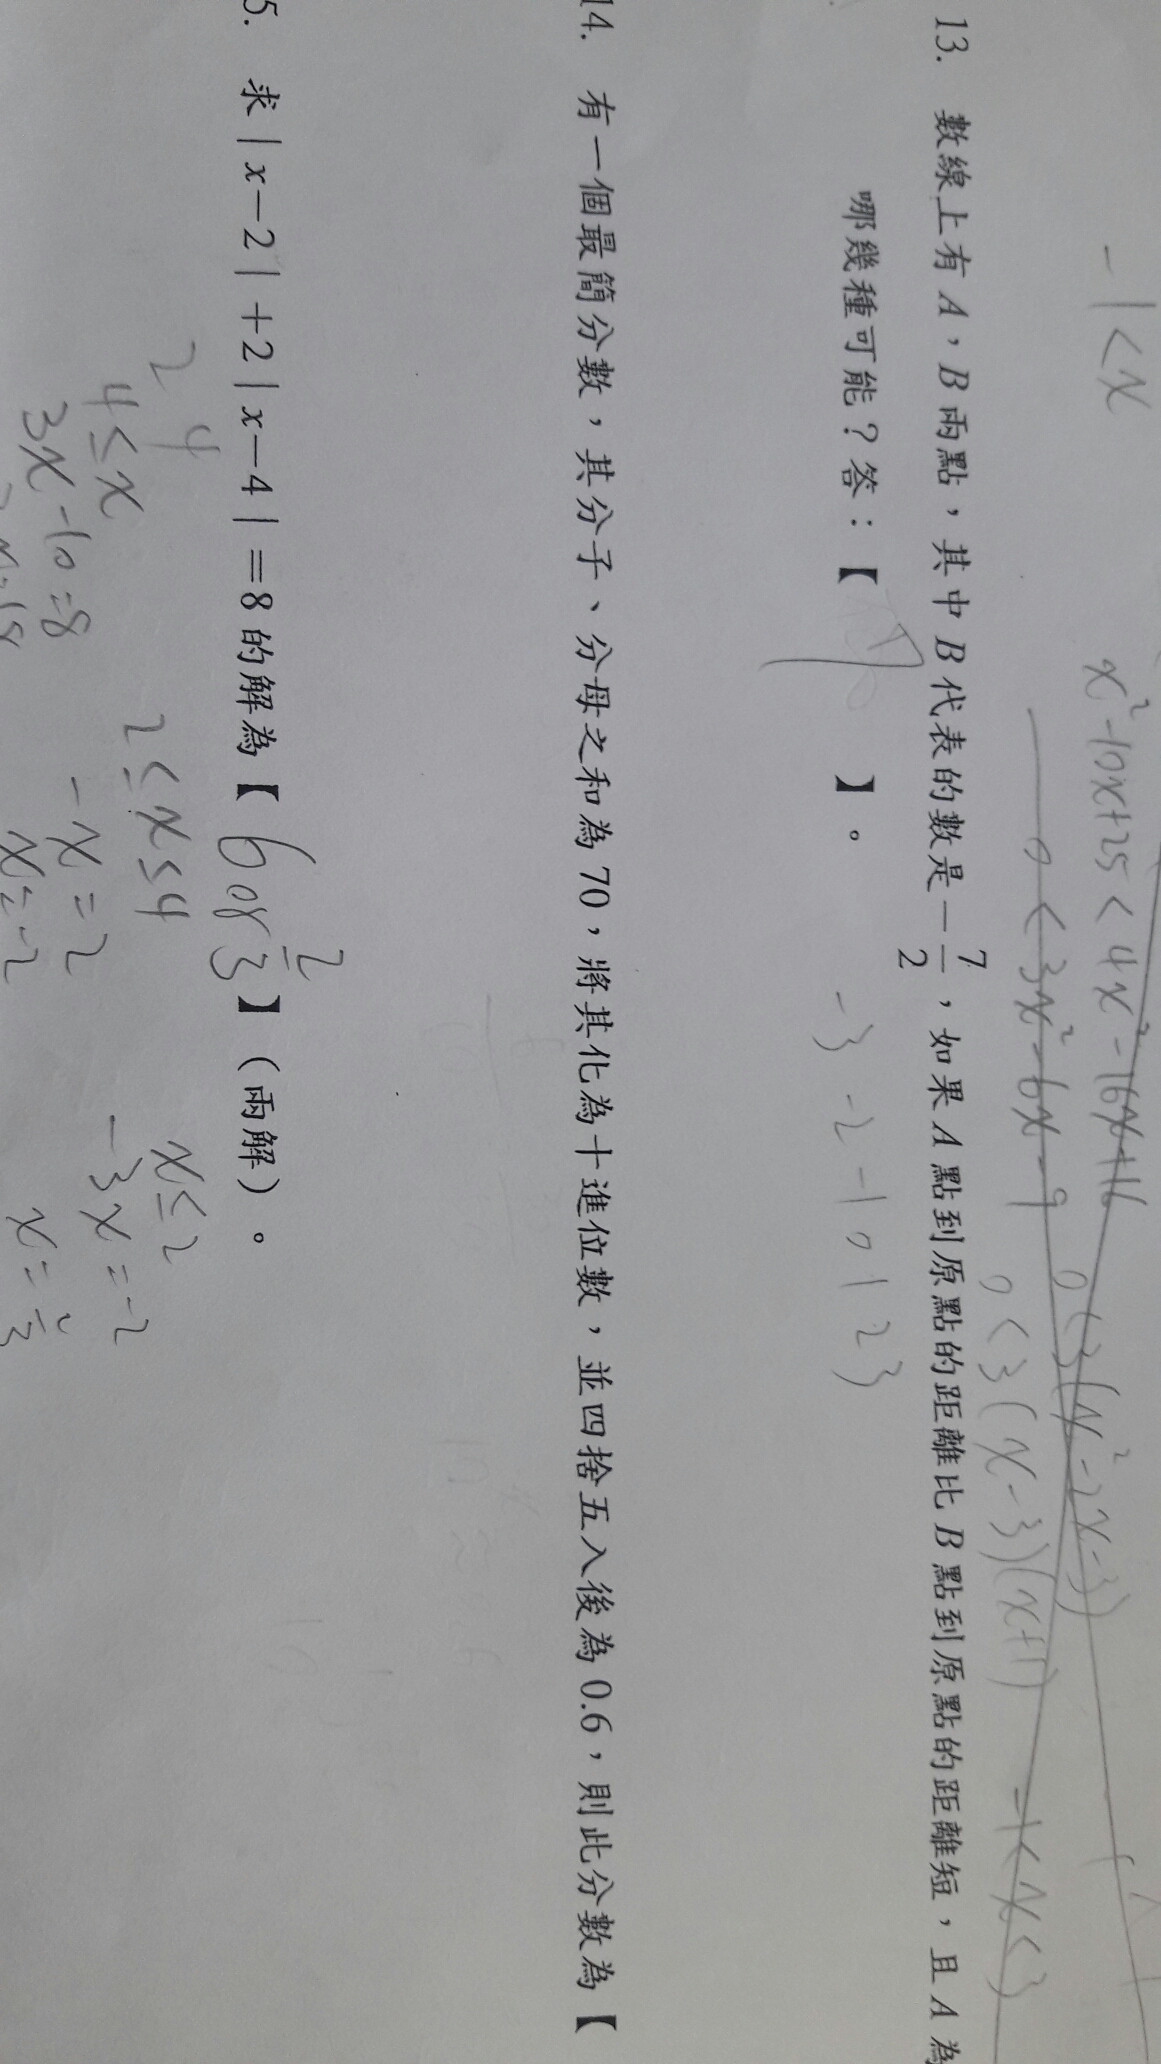 -1<x
x²-10x+25<4x²-16x+16
0<3(x²-2x-3)
0<3x²-6x-9
0<3(x-3)(x+1)
-1<x<3
13. 數線上有A，B兩點，其中B代表的數是－7/2，如果A點到原點的距離比B點到原點的距離短，且A為
哪幾種可能？答：【 】。
-3 -2 -1 0 1 2 3
14. 有一個最簡分數，其分子、分母之和為70，將其化為十進位數，並四捨五入後為0.6，則此分數為【
5. 求｜x－2｜＋2｜x－4｜＝8的解為【6 or 2/3】（兩解）。
2 4
4≤x
2≤x≤4
x≤2
3x-10=8
-x=2
-3x=-2
x=-2
x=2/3